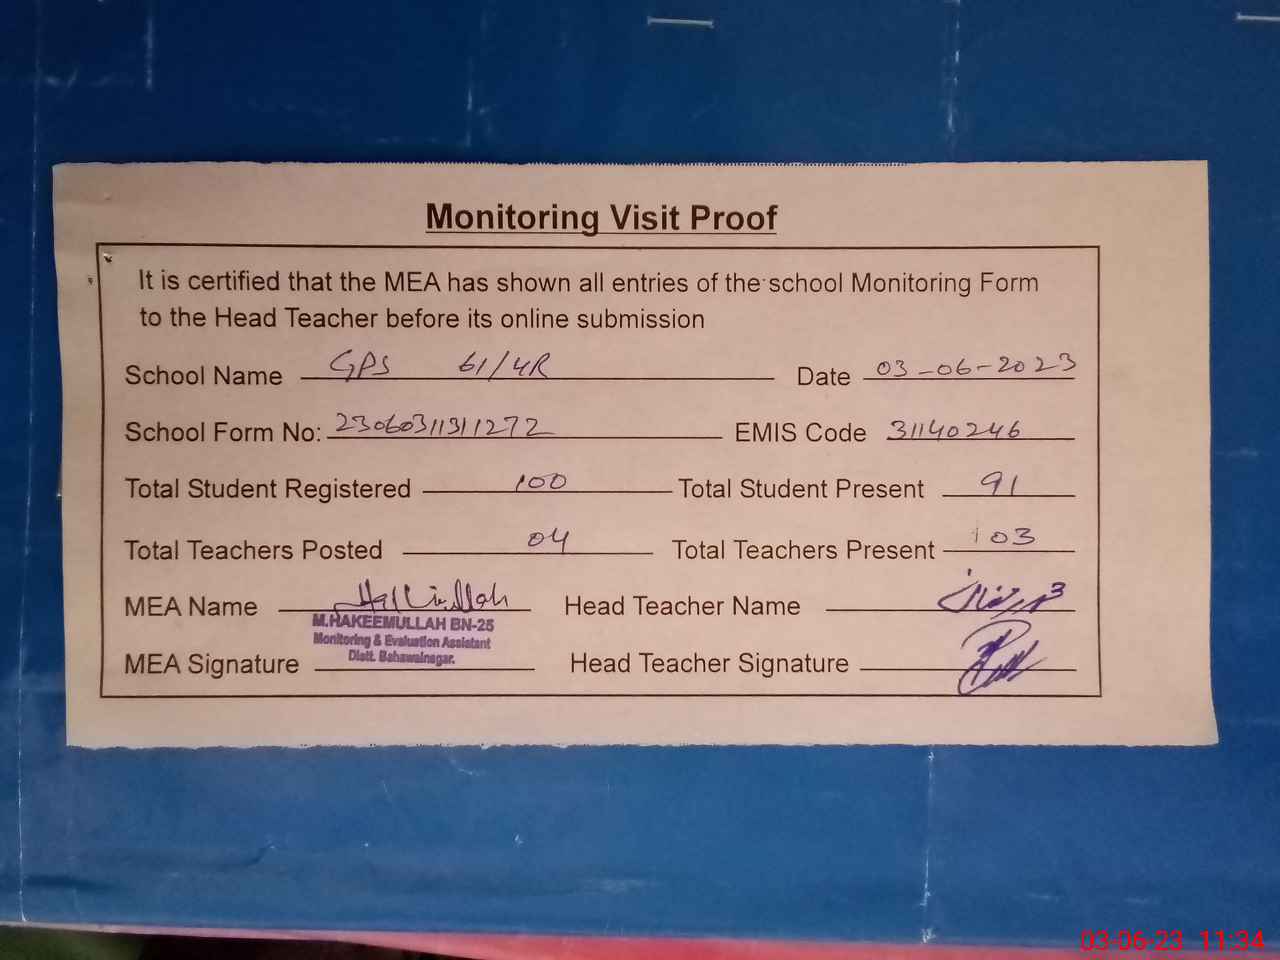 Monitoring Visit Proof
It is certified that the MEA has shown all entries of the school Monitoring Form
to the Head Teacher before its online submission
School Name GPS 61/4R Date 03-06-2023
School Form No: 23060311311272 EMIS Code 31140246
Total Student Registered 100 Total Student Present 91
Total Teachers Posted 04 Total Teachers Present 03
MEA Name Head Teacher Name
M.HAKEEMULLAH BN-25
Monitoring & Evaluation Assistant
Distt. Bahawalnagar.
MEA Signature Head Teacher Signature
03-06-23 11:34